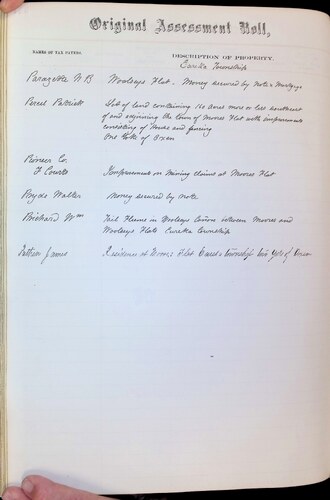 Original Assessment Roll,
NAMES OF TAX PAYERS
DESCRIPTION OF PROPERTY.
Eureka Township
N B Wooleys Flat. Money secured by note & Mortgage
Patrick Lot of land containing 160 Acres more or less southwest
of and adjoining the town of Moores Flat with improvements
consisting of House and fencing
One Yoke of Oxen
Pioneer Co.
F Courts Improvements on Mining claims at Moores Flat
Walter Money secured by note
Prichard Wm Tail Flume in Wooleys between Moores and
Wooleys Flats Eureka Township
James Residence at Moores Flat Eureka Township two Yoke of Oxen